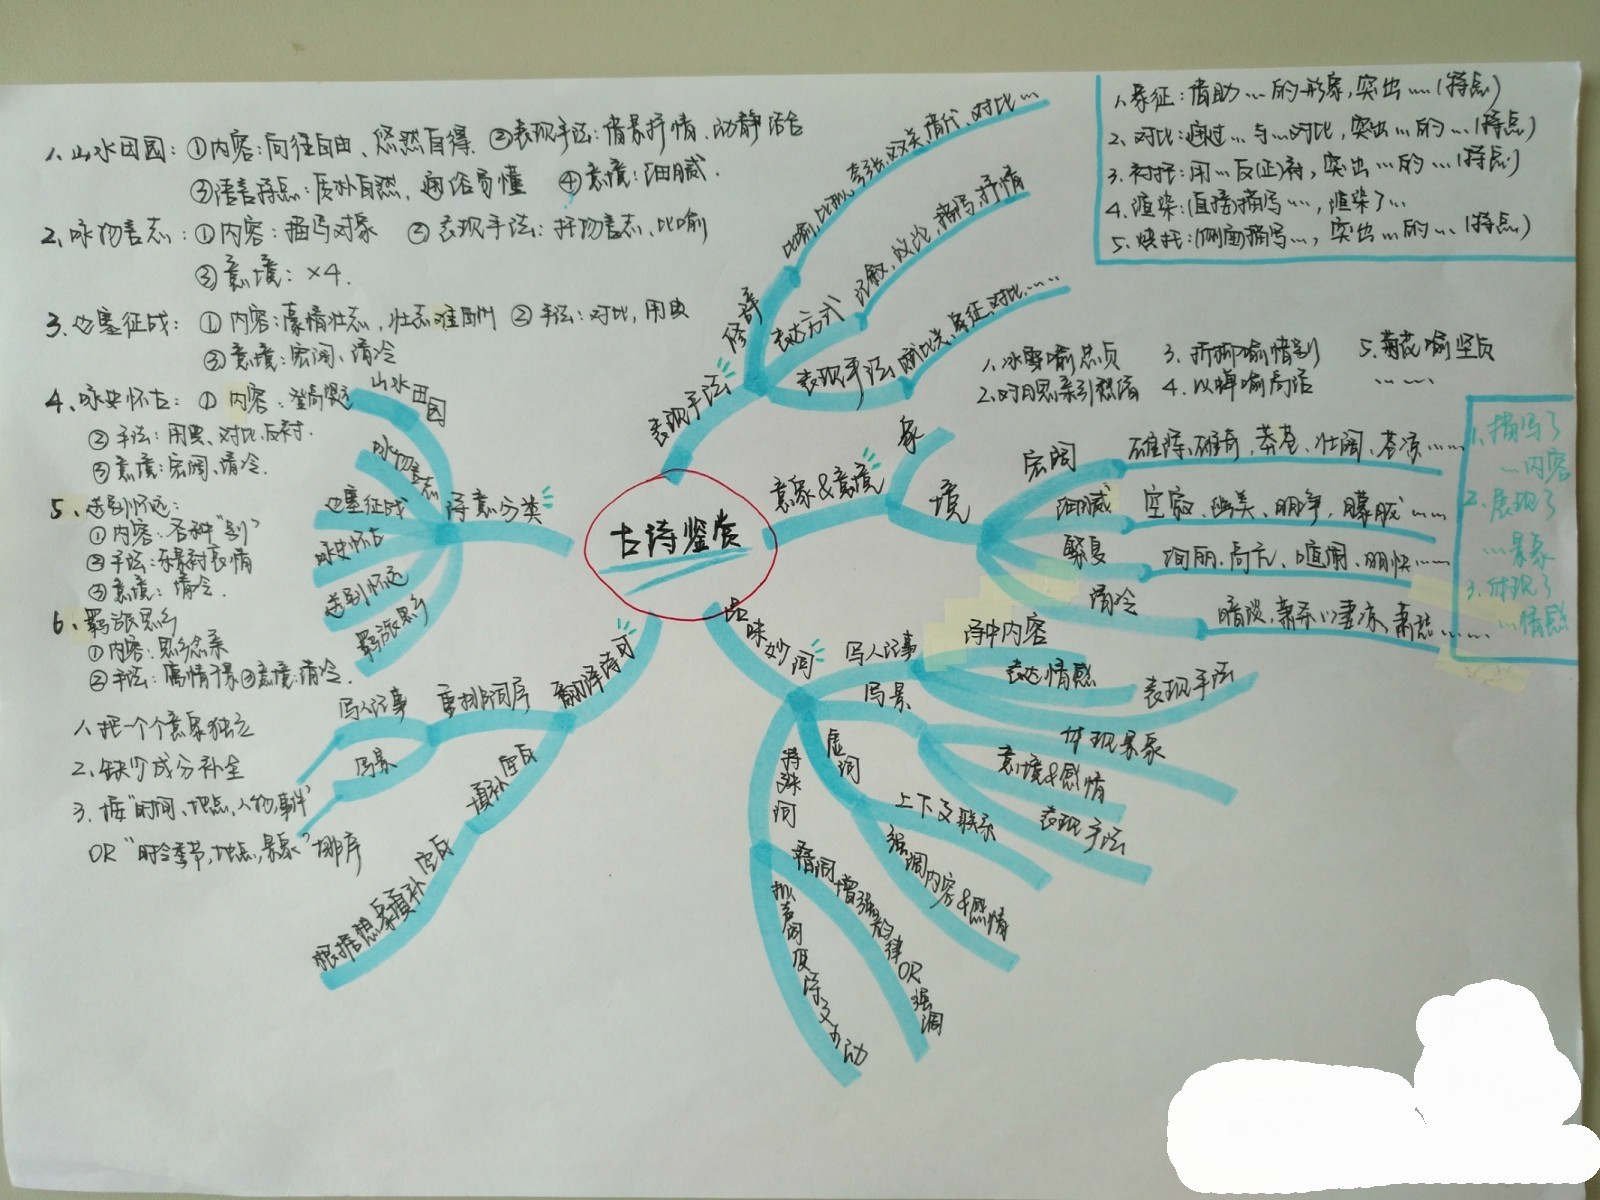 1、山水田园：①内容：向往自由、悠然自得 ②表现手法：借景抒情、动静结合
③语言特点：质朴自然，通俗易懂 ④意境：细腻.
2、咏物言志：①内容：描写对象 ②表现手法：托物言志、比喻
③意境：×4.
3、边塞征战：①内容：豪情壮志，壮志难酬 ②手法：对比，用典
③意境：宏阔、清冷
4、咏史怀古：①内容：
②手法：用典、对比、反衬.
③意境：宏阔、清冷.
5、送别怀远：
①内容：各种“别”
②手法：乐景衬哀情
③意境：清冷.
6、羁旅思乡
①内容：思乡念亲
②手法：寓情于景③意境：清冷.
1、把一个个意象独立
2、缺少成分补全
3、按“时间、地点、人物，事件”
OR“时令季节，地点，景象”排序
古诗鉴赏
诗意分类
山水田园
咏物言志
边塞征战
咏史怀古
送别怀远
羁旅思乡
表现手法
修辞
比喻，比拟，夸张，双关，借代，对比…
表达方式
记叙，议论，描写，抒情
表现手法
赋比兴，象征，对比……
1、象征：借助…的形象，突出……(特点)
2、对比：通过…与…对比，突出…的…(特点)
3、衬托：用…反(正)衬，突出…的…(特点)
4、渲染：(直接)描写…，渲染了…
5、烘托：(侧面)描写…，突出…的…(特点)
意象&意境
象
1、冰雪喻忠贞
2、对月思亲引愁绪
3、折柳喻惜别
4、以蝉喻高洁
5、菊花喻坚贞
……
境
宏阔
雄浑、雄奇，苍茫、壮阔、苍凉……
细腻
空寂、幽美、明净，朦胧……
繁复
绚丽、高亢、喧闹、明快……
清冷
暗淡，萧瑟，凄凉，萧……
1、描写了
…内容
2、展现了
…景象
3、体现了
…情感
品味妙词
写人记事
诗中内容
表达情感
表现手法
写景
体现景象
意境&感情
表现手法
虚词
上下文联系
强调内容&感情
特殊词
叠词增强韵律OR强调
拟声词使诗文生动
翻译诗句
重排词序
写人记事
写景
填补空白
根据想象填补空白